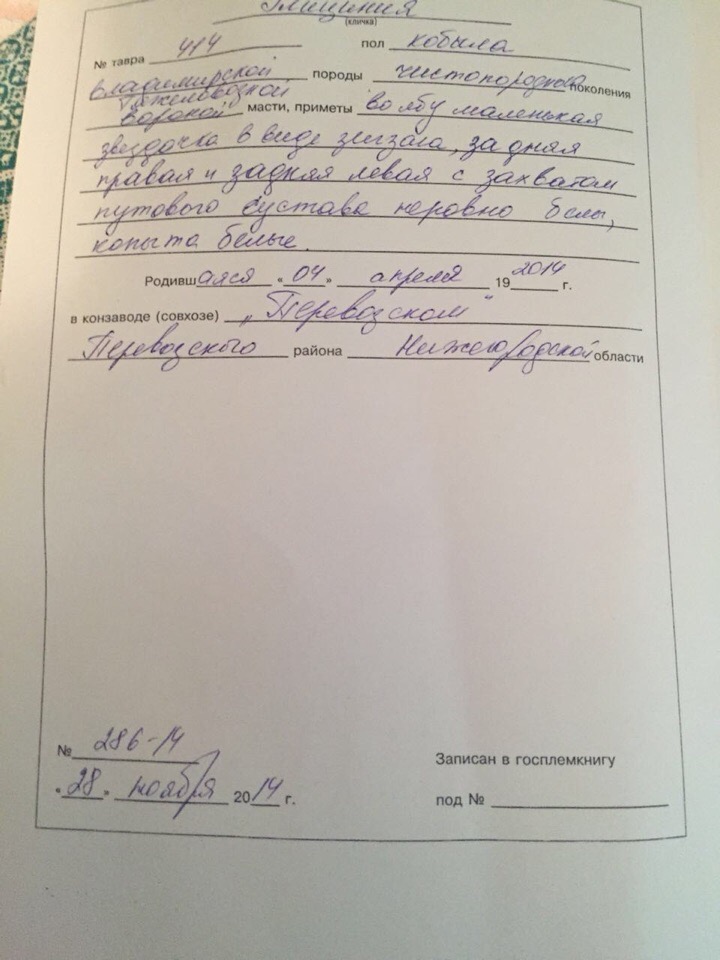 Глициния
(кличка)
№ тавра 414 пол кобыла
владимирской породы чистопородная поколения
тяжеловозной
вороной масти, приметы во лбу маленькая
звездочка в виде зигзага, задняя
правая и задняя левая с захватом
путового сустава неровно белы,
копыта белые.
Родившаяся «04» апреля 192014 г.
в конзаводе (совхозе) „Перевозском"
Перевозского района Нижегородской области
№ 286-14 Записан в госплемкнигу
«28» ноября 2014 г. под №